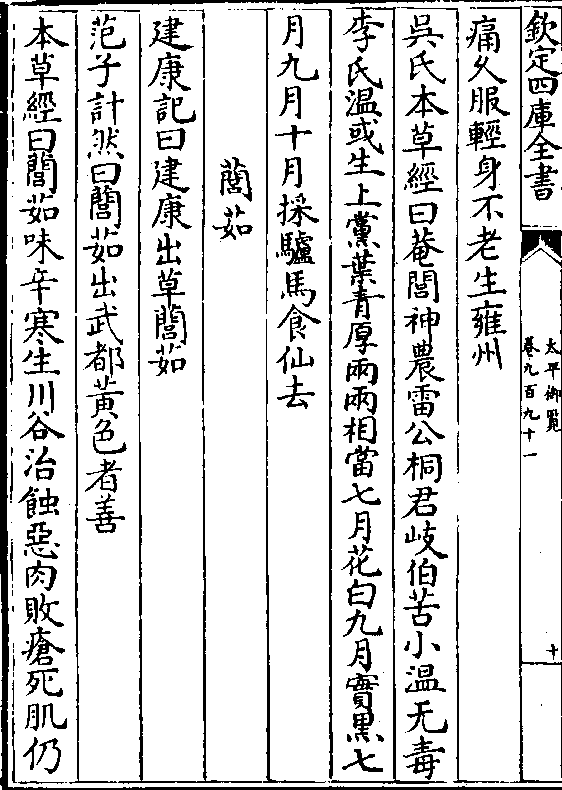 欽定四庫全書
太平御覽
卷九百九十一
十
痛久服輕身不老生雍州
吳氏本草經曰菴閭神農雷公桐君岐伯苦小温无毒
李氏温或生上黨葉青厚兩兩相當七月花白九月實黒七
月九月十月採驢馬食仙去
䕡茹
建康記曰建康出草䕡茹
范子計然曰䕡茹出武都黄色者善
本草經曰䕡茹味辛寒生川谷治蝕惡肉敗瘡死肌仍